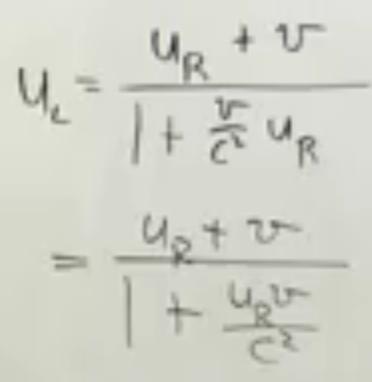 u_L = \frac{u_R + v}{1 + \frac{v}{c^2} u_R}
= \frac{u_R + v}{1 + \frac{u_R v}{c^2}}